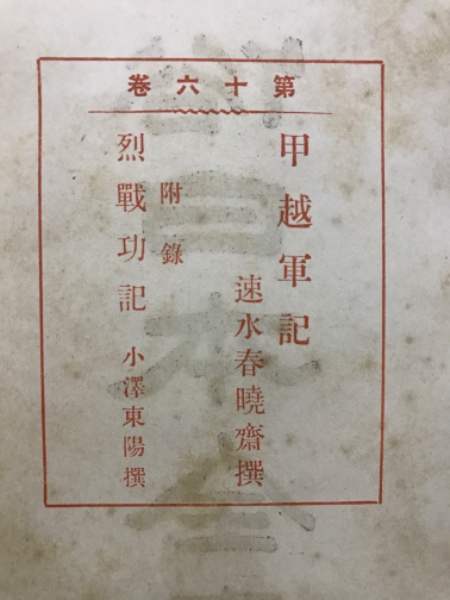 第十六卷
甲越軍記
速水春曉齋撰
附錄
烈戰功記 小澤東陽撰